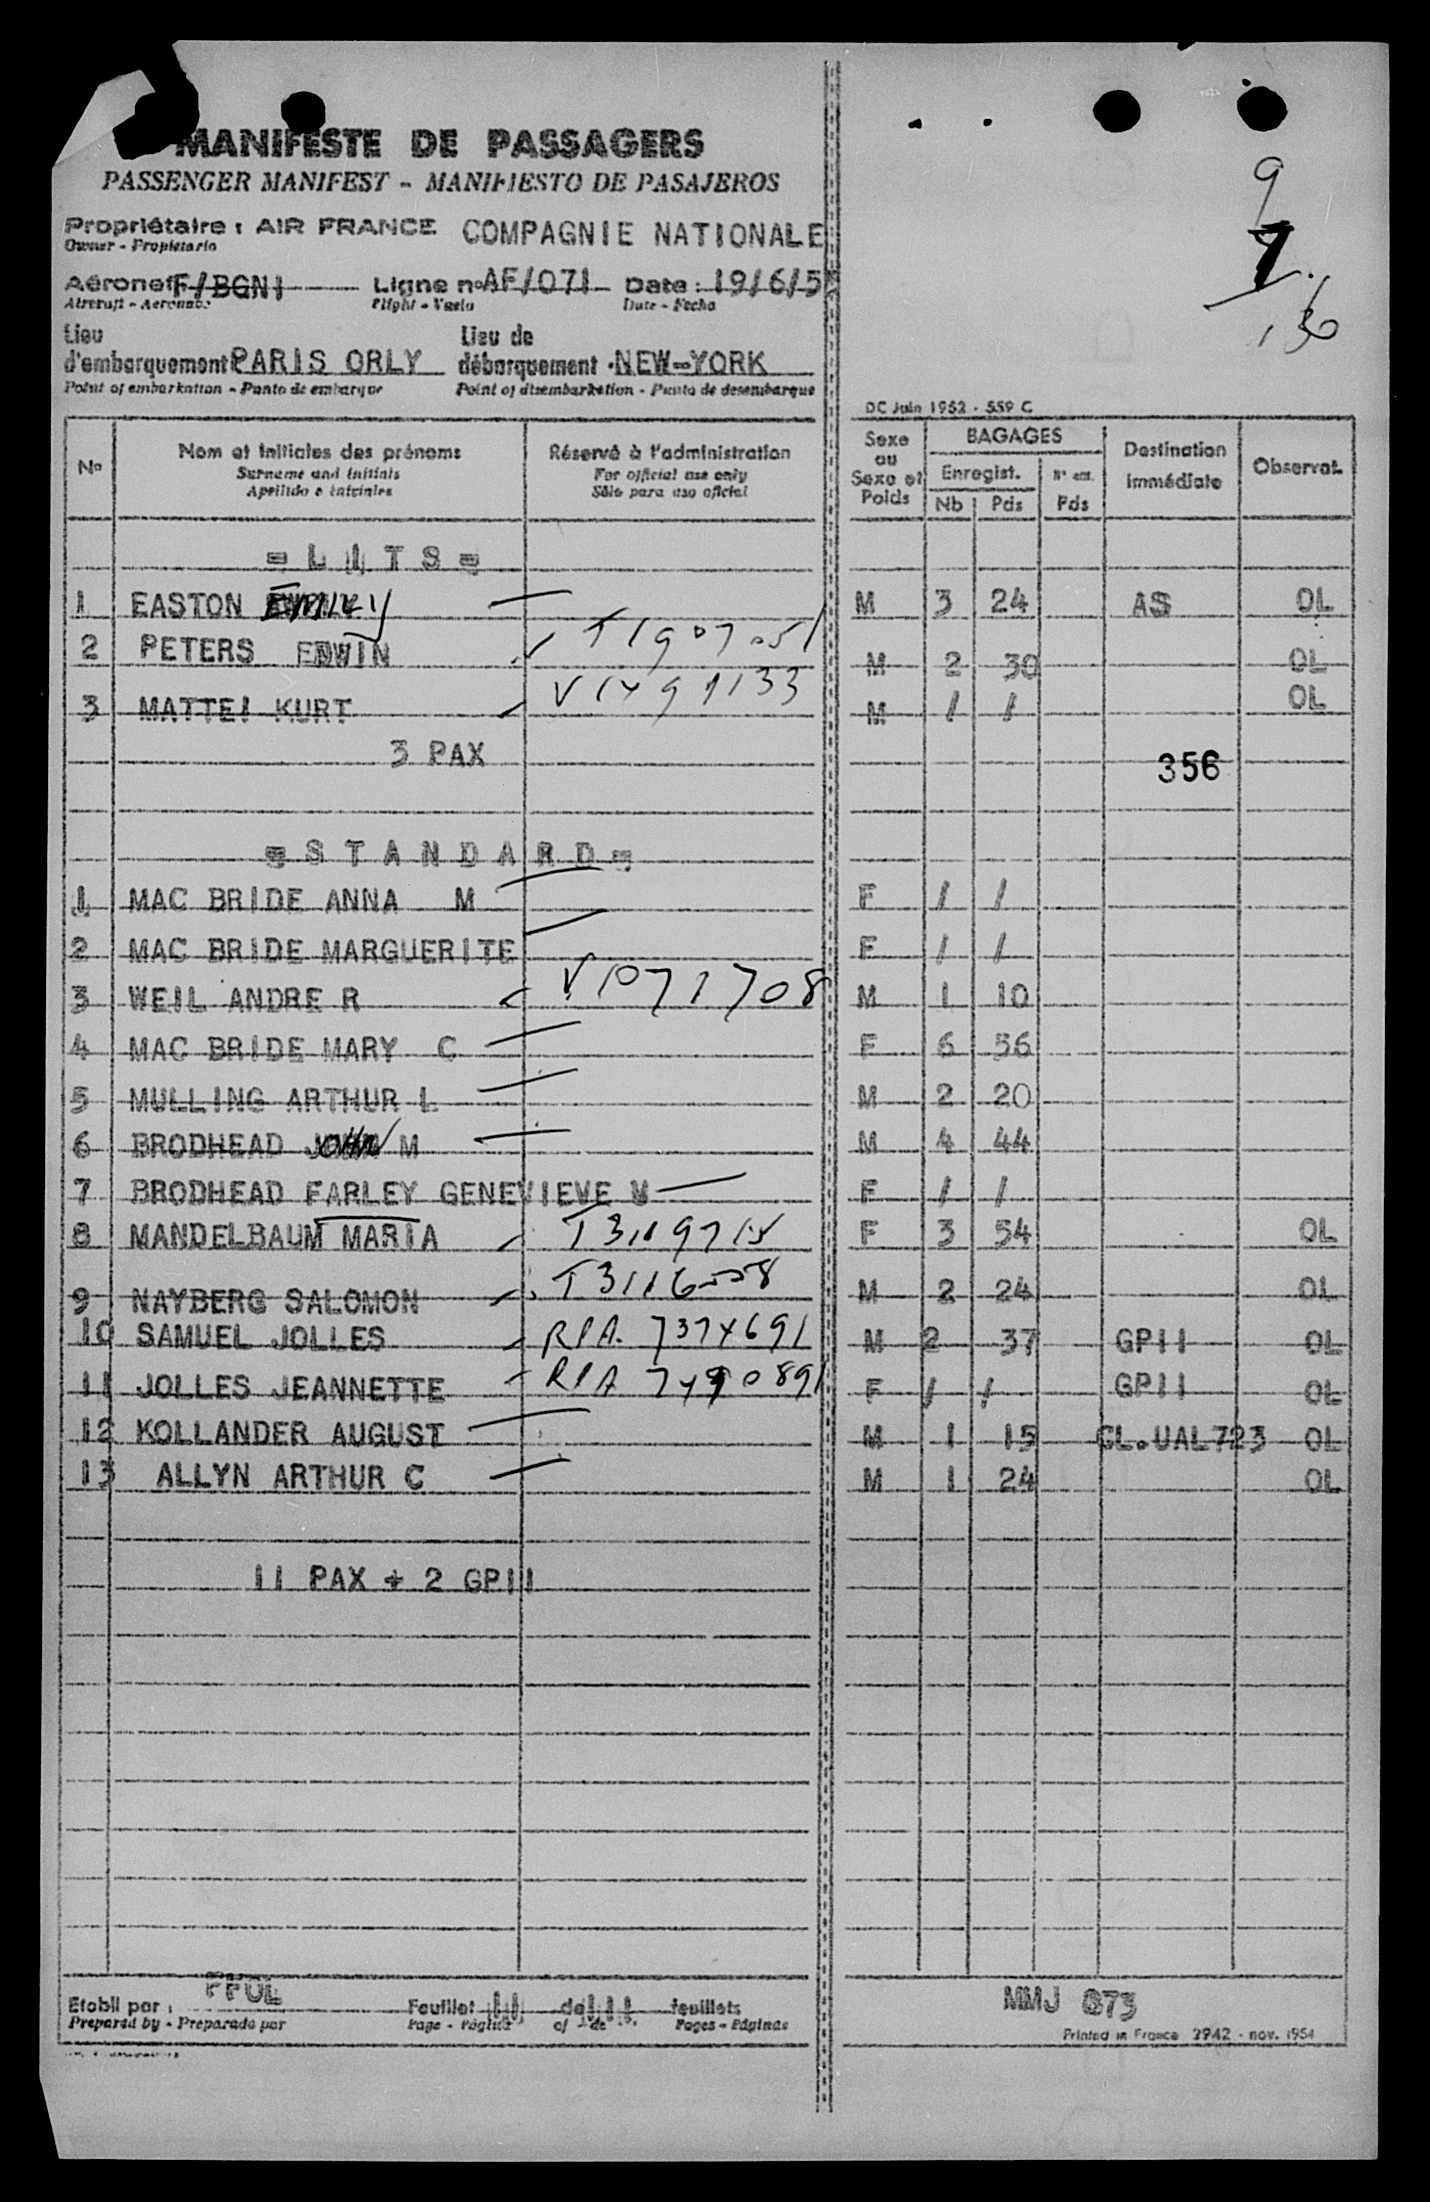 MANIFESTE DE PASSAGERS
PASSENGER MANIFEST - MANIFIESTO DE PASAJEROS
Propriétaire : AIR FRANCE COMPAGNIE NATIONALE
Owner - Propietario
Aéronef F/BGNI Ligne n° AF/071 Date : 19/6/55
Aircraft - Aeronave Flight - Vuelo Date - Fecha
Lieu d'embarquement PARIS ORLY Lieu de débarquement NEW-YORK
Point of embarkation - Punto de embarque Point of disembarkation - Punto de desembarque
9
DC Juin 1952 - 559 C
N° Nom et initiales des prénoms Réservé à l'administration Sexe ou Sexe et Poids BAGAGES Destination immédiate Observat.
Surname and initials For official use only Enregist.
Apellido e iniciales Sólo para uso oficial Nb Pds Pds
= L I T S =
1 EASTON EMILY M 3 24 AS OL
2 PETERS EDWIN T1907051 M 2 30 OL
3 MATTEI KURT V1491133 M / / OL
3 PAX
356
= S T A N D A R D =
1 MAC BRIDE ANNA M F / /
2 MAC BRIDE MARGUERITE F / /
3 WEIL ANDRE R V1071708 M 1 10
4 MAC BRIDE MARY C F 6 56
5 MULLING ARTHUR L M 2 20
6 BRODHEAD JOHN M M 4 44
7 BRODHEAD FARLEY GENEVIEVE W F / /
8 MANDELBAUM MARIA F 3 54 OL
9 NAYBERG SALOMON M 2 24 OL
10 SAMUEL JOLLES RPA. 7374691 M 2 37 GP11 OL
11 JOLLES JEANNETTE RPA F / / GP11 OL
12 KOLLANDER AUGUST M 1 15 CL.UAL723 OL
13 ALLYN ARTHUR C M 1 24 OL
11 PAX + 2 GP11
Etabli par : Feuillet de feuillets
Prepared by - Preparado por Page - Página of - de Pages - Páginas
MMJ 873
Printed in France 2942 - nov. 1954